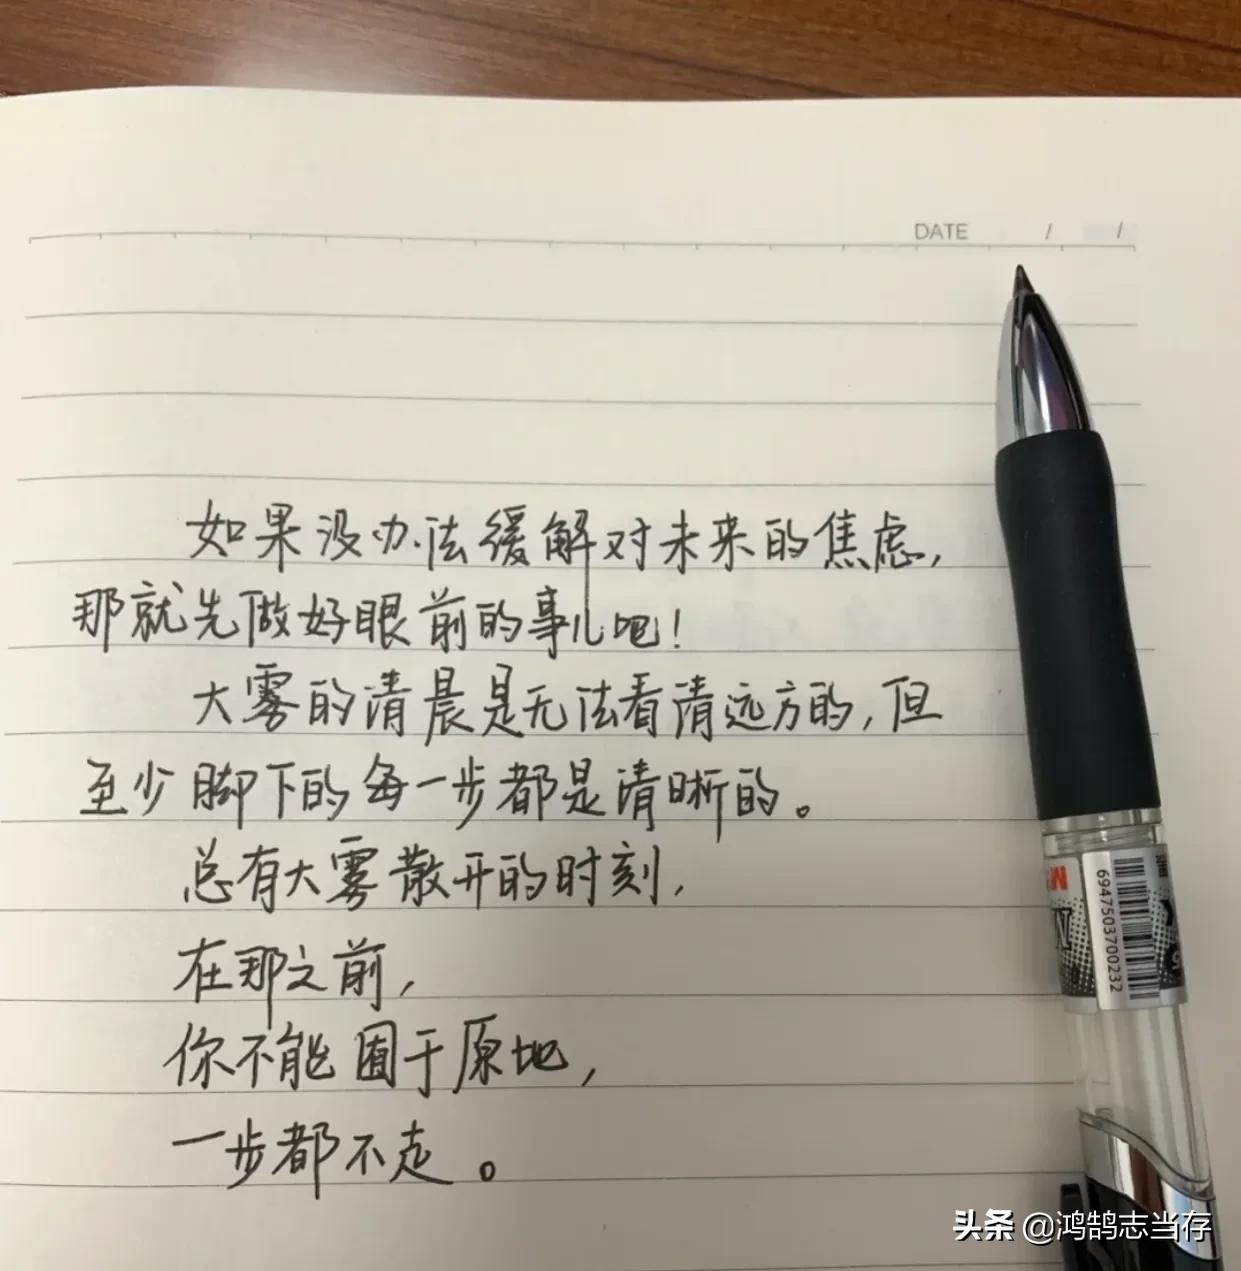 DATE / /
如果没办法缓解对未来的焦虑,
那就先做好眼前的事儿吧!
大雾的清晨是无法看清远方的,但
至少脚下的每一步都是清晰的。
总有大雾散开的时刻,
在那之前,
你不能囿于原地,
一步都不走。
6947503700232
头条 @鸿鹄志当存